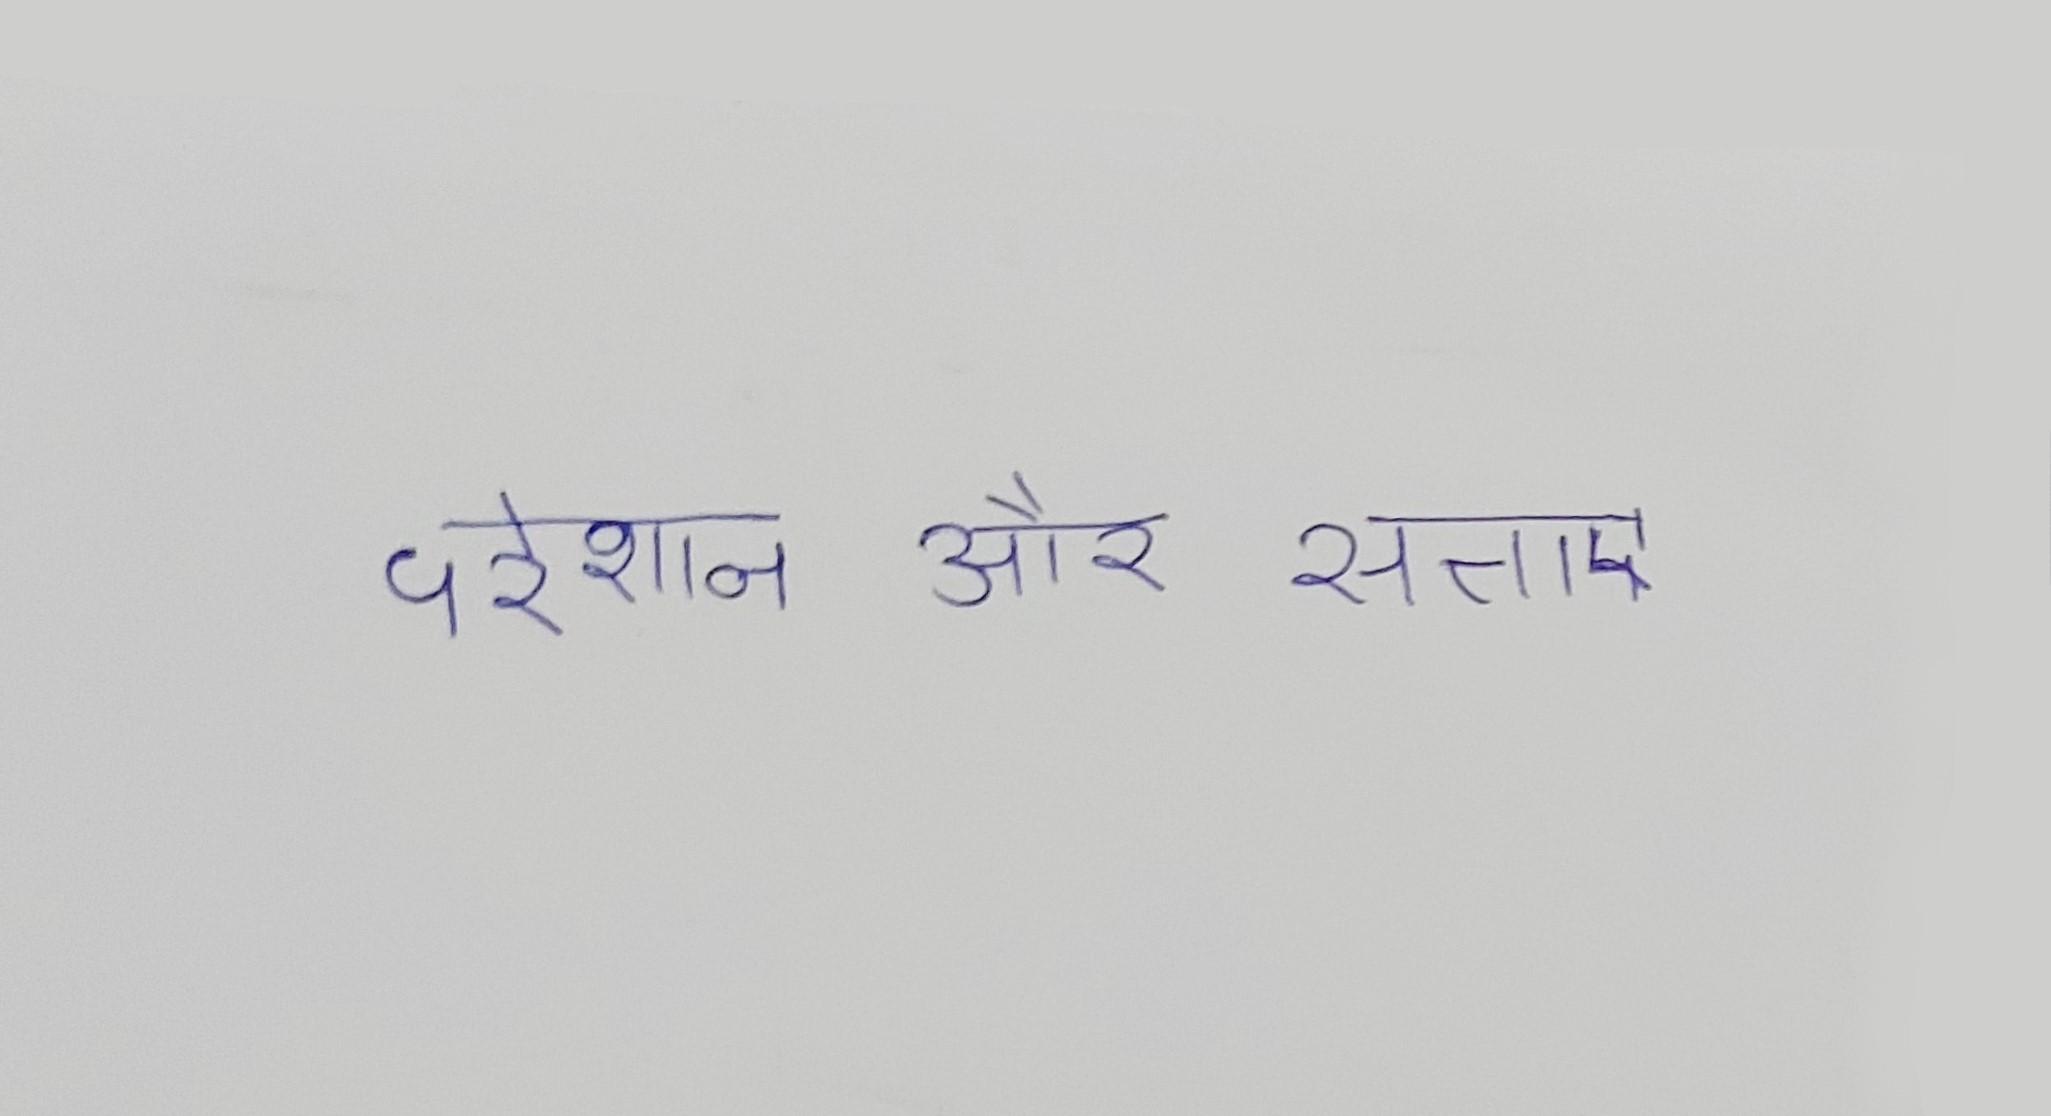 परेशान और सत्ताए